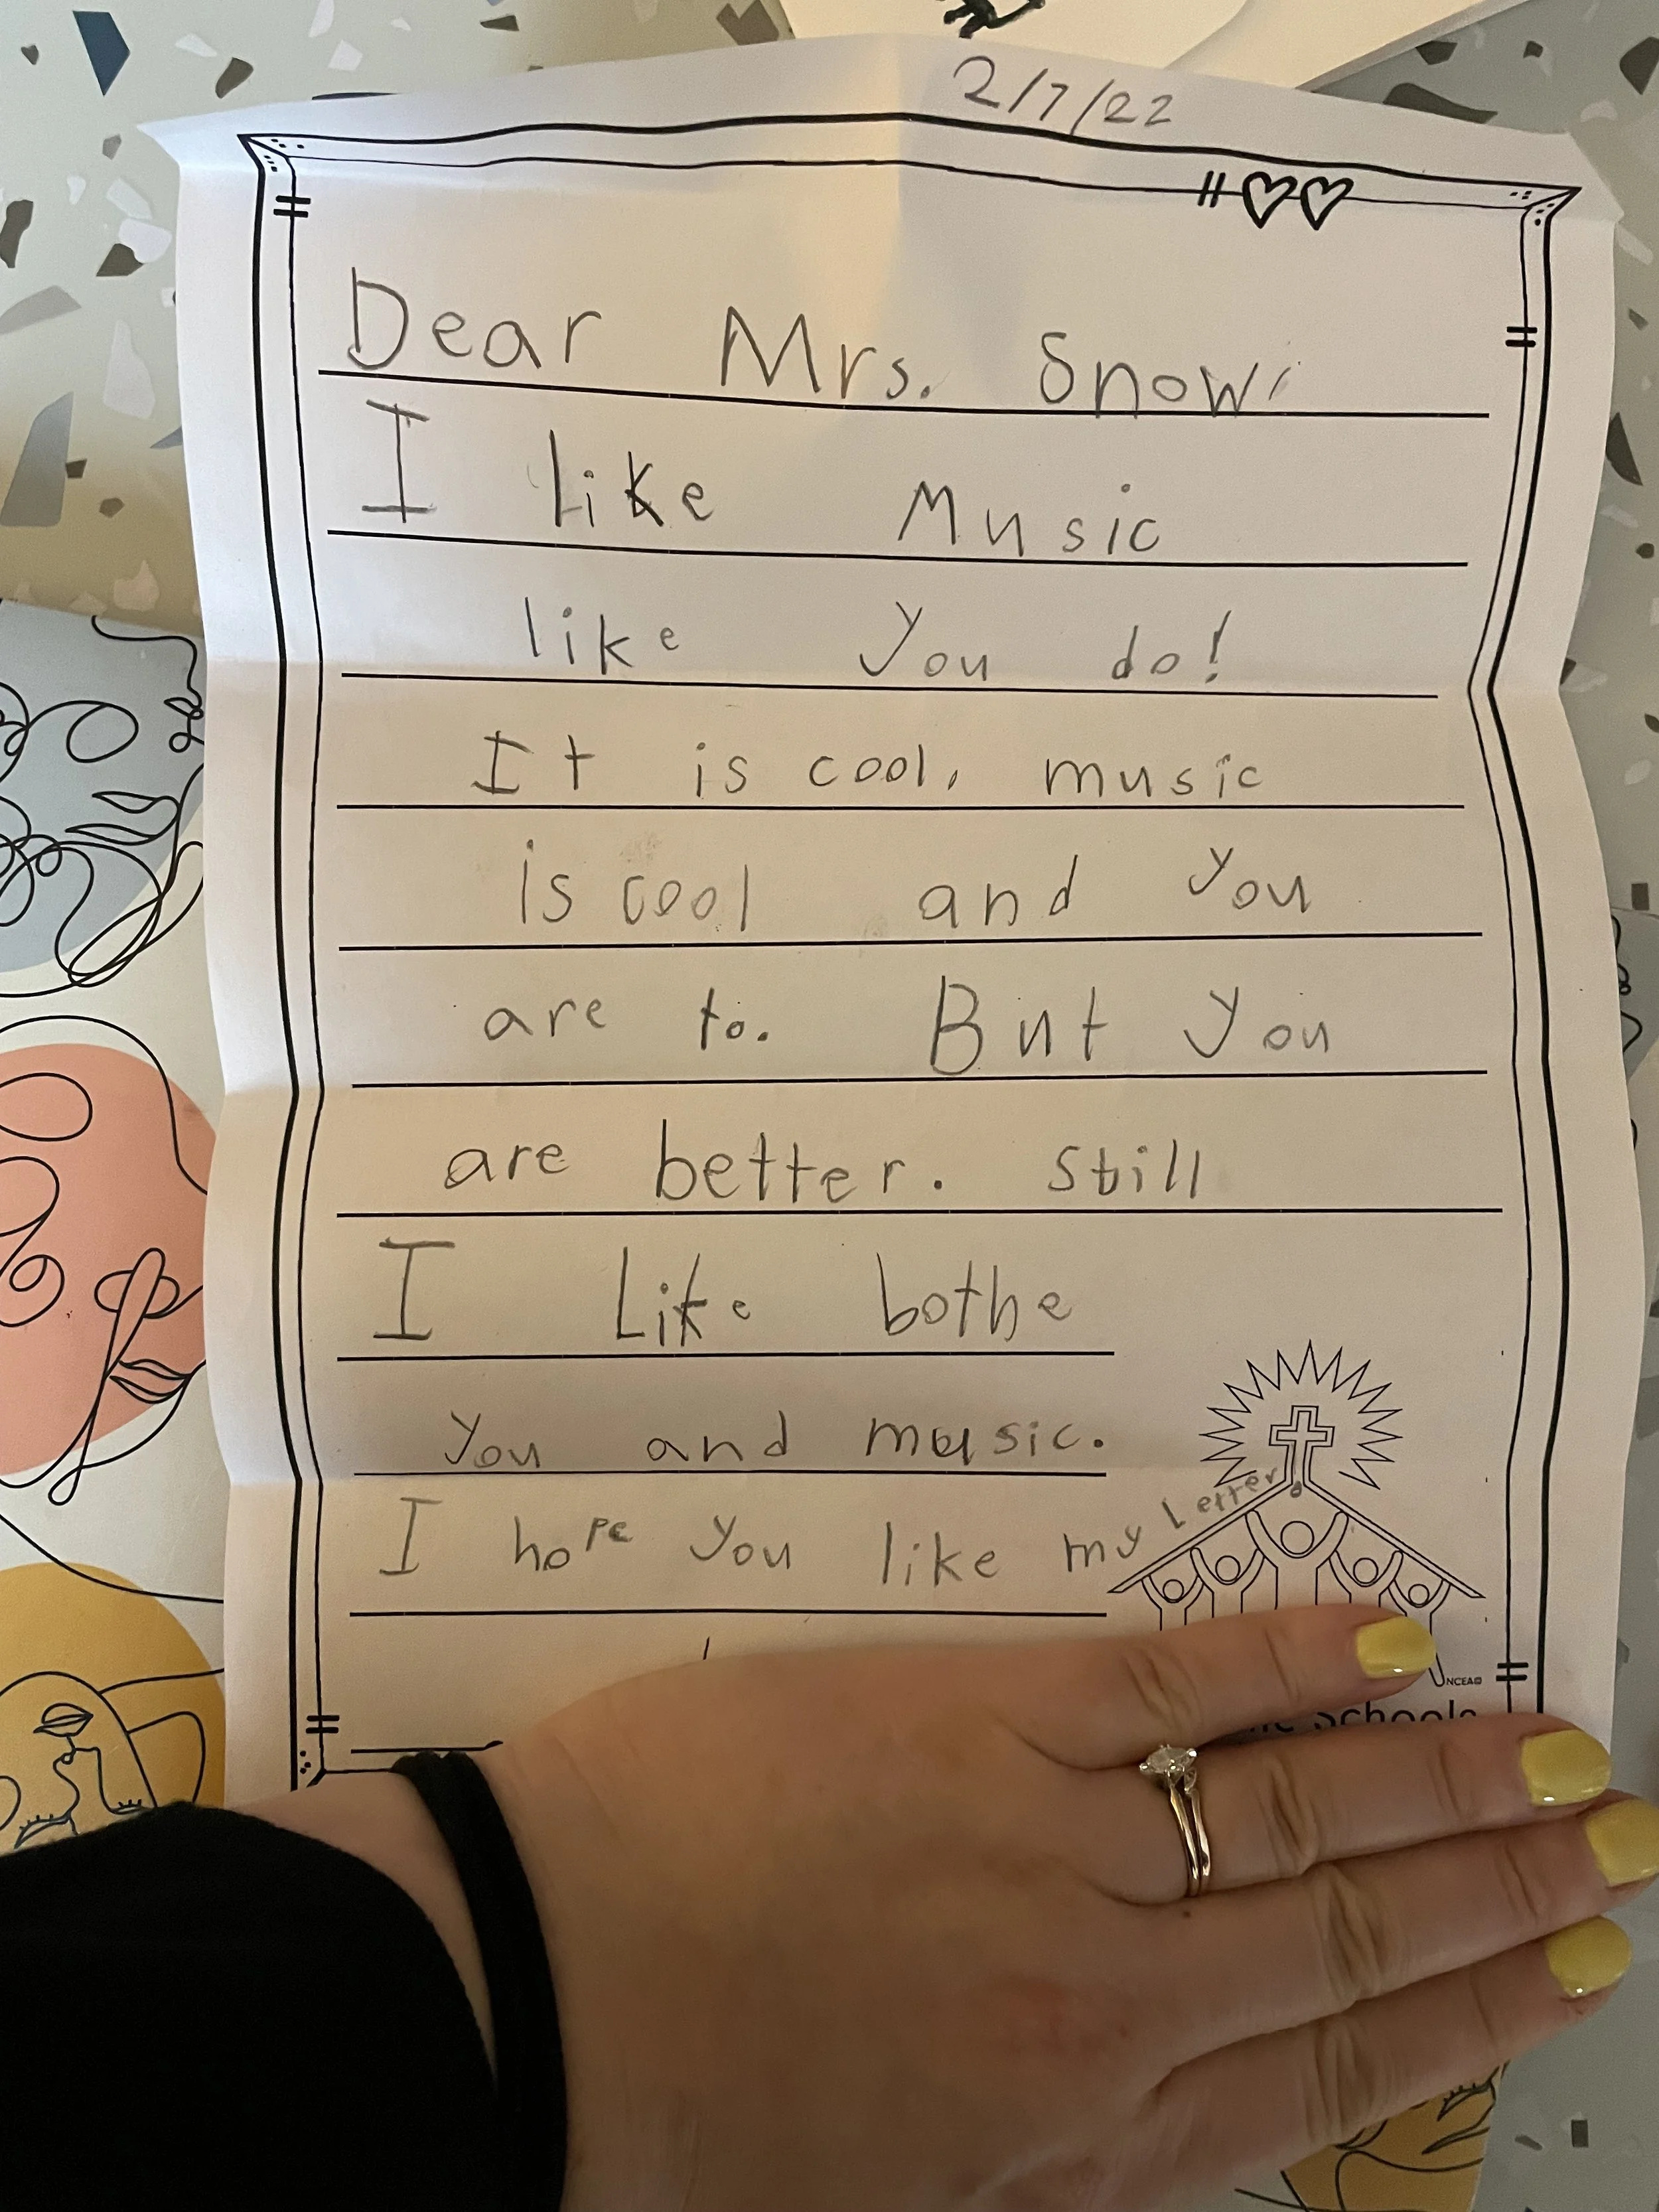 2/7/22
Dear Mrs. Snow,
I like Music
like you do!
It is cool, music
is cool and you
are to. But you
are better. Still
I Like bothe
you and music.
I hope you like my Letter.
NCEA
Schools